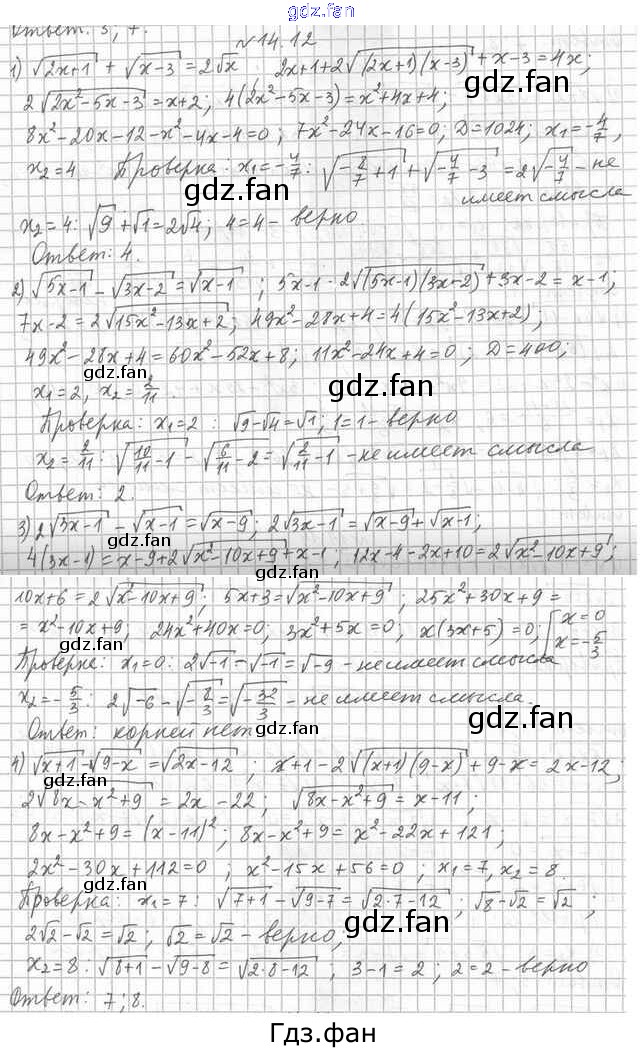 gdz.fan
Ответ: 3; 7.
№14.12
1) √(2x+1) + √(x-3) = 2√x 2x+1+2√((2x+1)(x-3)) + x-3 = 4x;
2√(2x²-5x-3) = x+2; 4(2x²-5x-3) = x²+4x+4;
8x²-20x-12-x²-4x-4=0; 7x²-24x-16=0; D=1024; x₁=-4/7,
x₂=4 Проверка: x₁=-4/7: √(-8/7+1) + √(-4/7-3) = 2√(-4/7) - не
имеет смысла
gdz.fan gdz.fan
x₂=4: √9+√1=2√4; 4=4 - верно
Ответ: 4.
2) √(5x-1) - √(3x-2) = √(x-1); 5x-1-2√((5x-1)(3x+2)) + 3x-2 = x-1;
gdz.fan gdz.fan
7x-2=2√(15x²-13x+2); 49x²-28x+4=4(15x²-13x+2);
49x²-28x+4=60x²-52x+8; 11x²-24x+4=0; D=400;
x₁=2, x₂=2/11.
gdz.fan gdz.fan
Проверка: x₁=2: √9-√4=√1; 1=1 - верно
x₂=2/11: √(10/11-1) - √(6/11-2) = √(2/11-1) - не имеет смысла
Ответ: 2.
gdz.fan gdz.fan
3) 2√(3x-1) - √(x-1) = √(x-9); 2√(3x-1) = √(x-9)+√(x-1);
4(3x-1)=x-9+2√(x²-10x+9)+x-1; 12x-4-2x+10=2√(x²-10x+9);
gdz.fan
10x+6=2√(x²-10x+9); 5x+3=√(x²-10x+9); 25x²+30x+9=
= x²-10x+9; 24x²+40x=0; 3x²+5x=0; x(3x+5)=0; [x=0 x=-5/3
gdz.fan gdz.fan
Проверка: x₁=0: 2√-1 - √-1 = √-9 - не имеет смысла
x₂=-5/3: 2√-6 - √(-8/3) = √(-32/3) - не имеет смысла.
Ответ: корней нет
gdz.fan gdz.fan
4) √(x+1)-√(9-x) = √(2x-12); x+1-2√((x+1)(9-x))+9-x=2x-12;
gdz.fan
2√(8x-x²+9) = 2x-22; √(8x-x²+9) = x-11;
8x-x²+9=(x-11)²; 8x-x²+9=x²-22x+121;
gdz.fan
2x²-30x+112=0; x²-15x+56=0; x₁=7, x₂=8.
gdz.fan
Проверка: x₁=7: √(7+1)-√(9-7)=√(2·7-12); √8-√2=√2;
gdz.fan
2√2-√2=√2; √2=√2 - верно,
gdz.fan
x₂=8: √(8+1)-√(9-8)=√(2·8-12); 3-1=2; 2=2 - верно
Ответ: 7; 8.
Гдз.фан